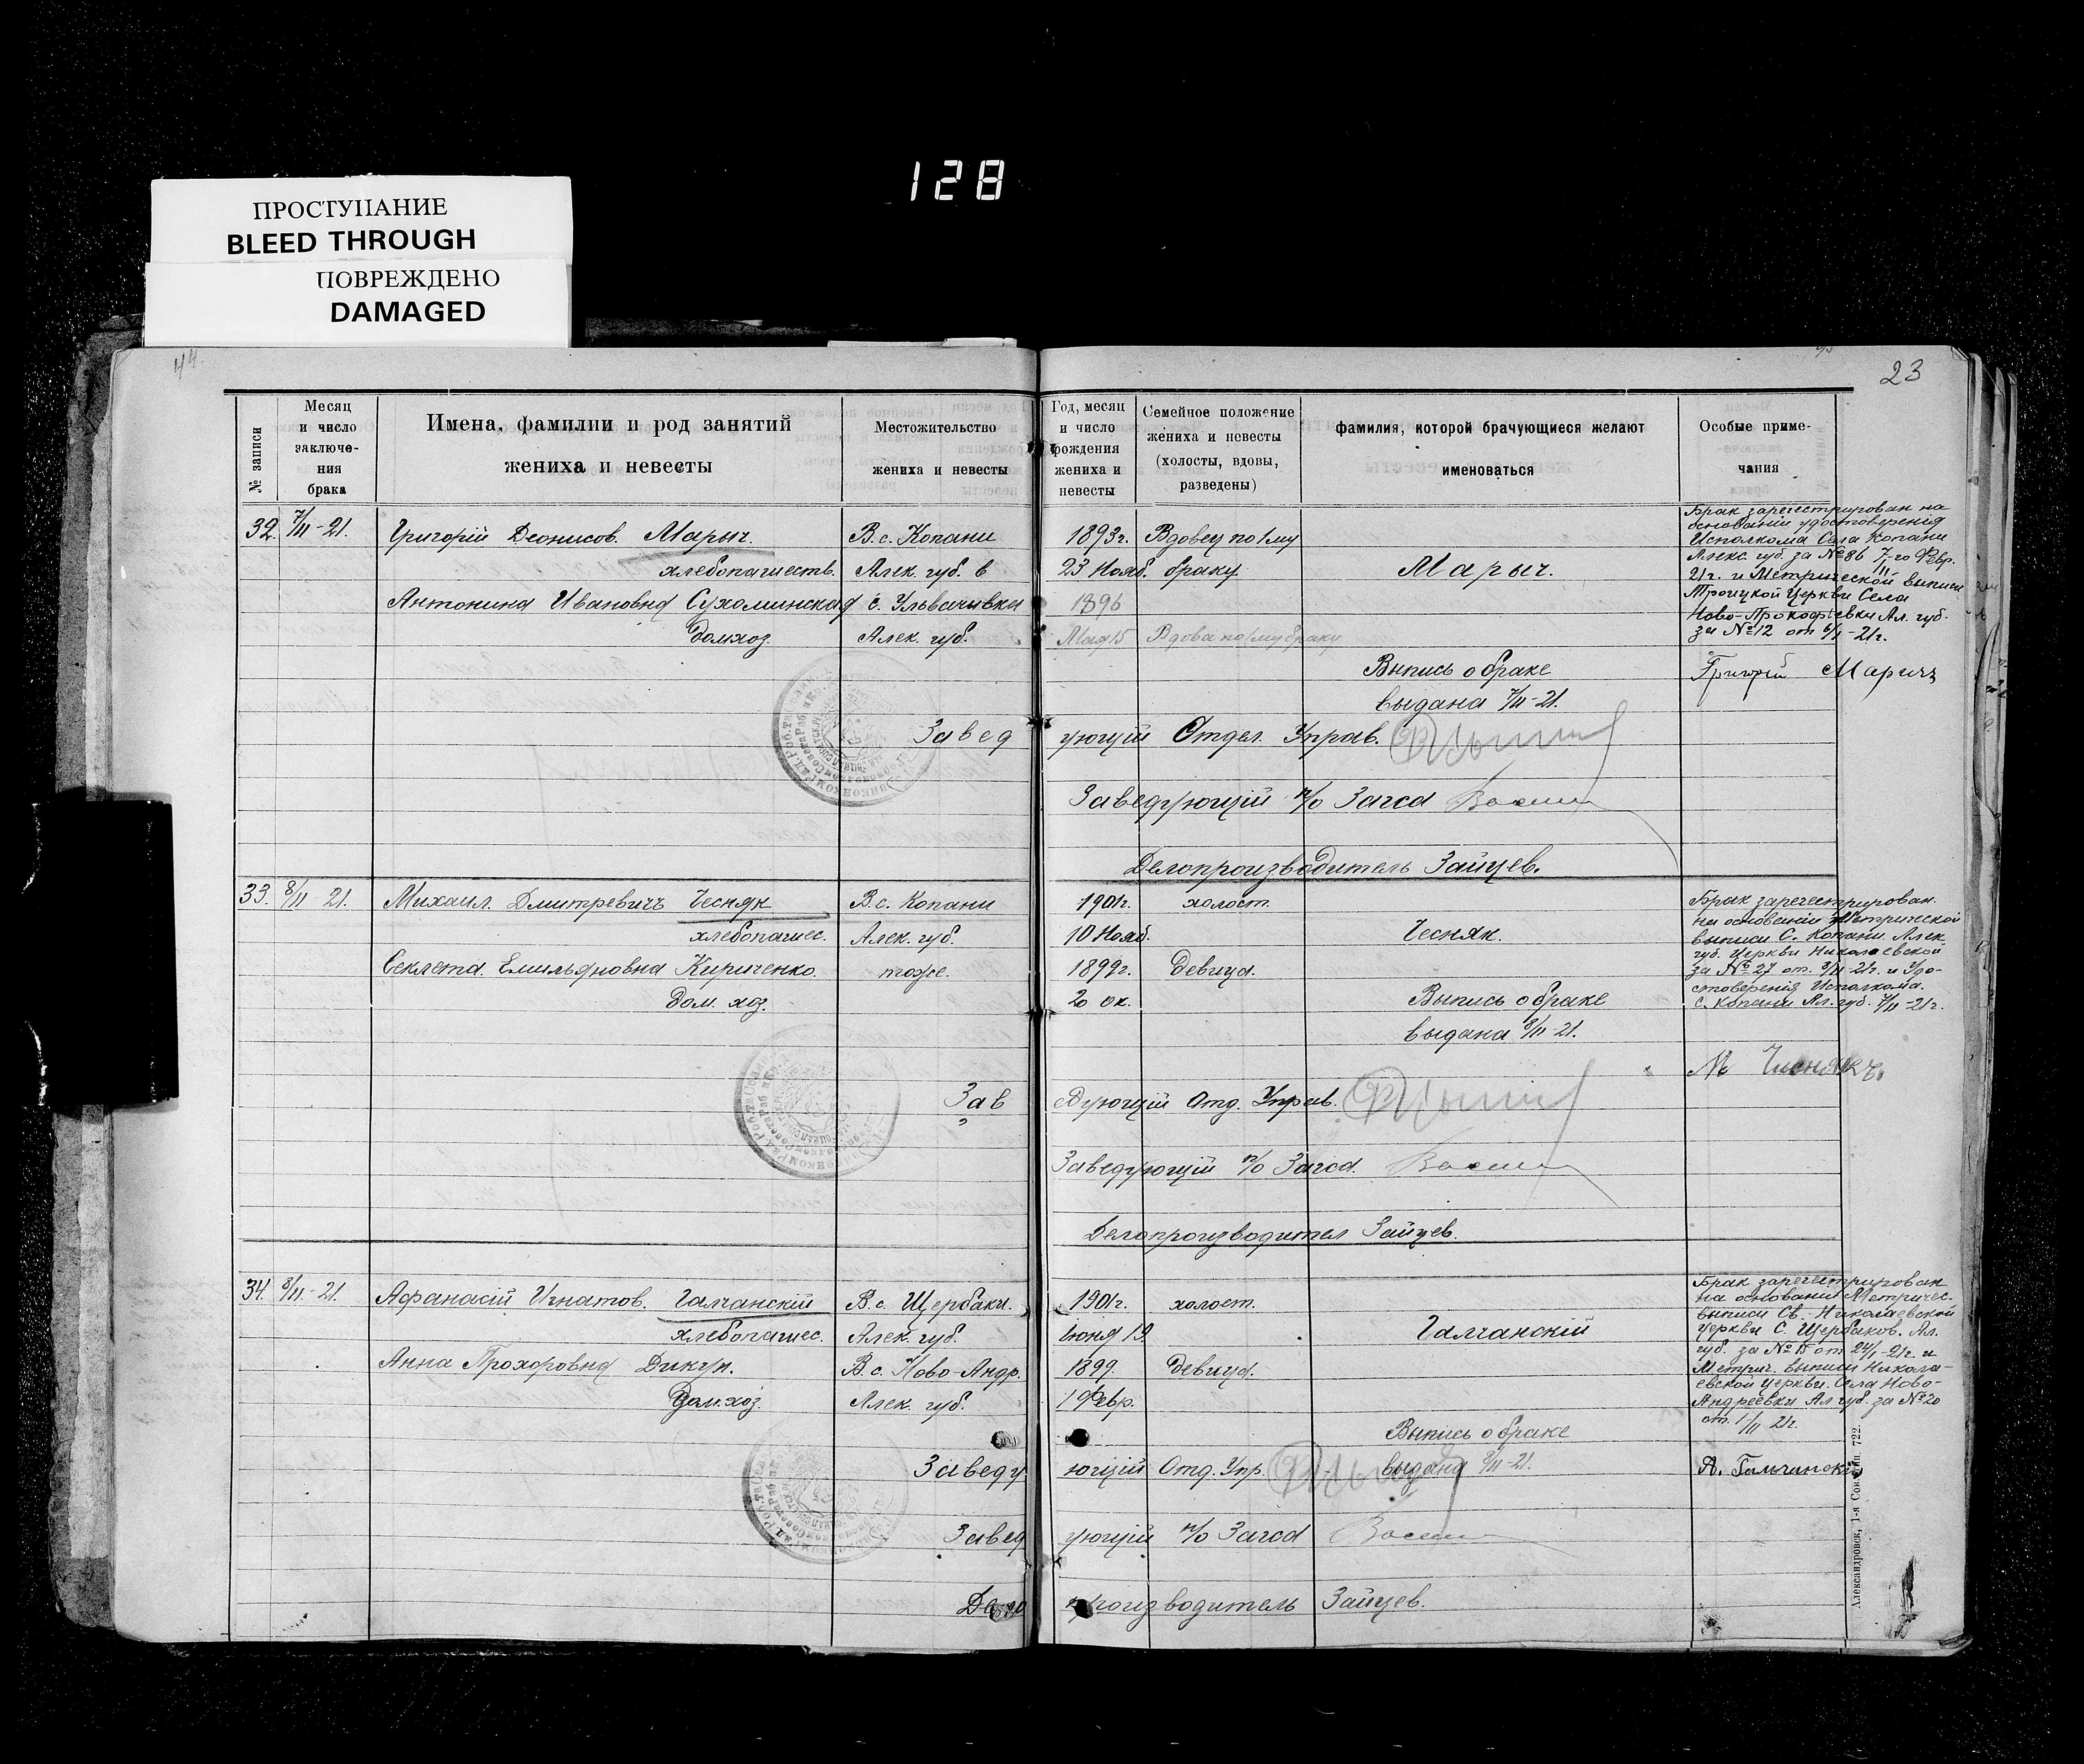 128
ПРОСТУПАНИЕ
BLEED THROUGH
ПОВРЕЖДЕНО
DAMAGED
44
23
№ записи
Месяц и число заключе-ния брака
Имена, фамилии и род занятий жениха и невесты
Местожительство жениха и невесты
Год, месяц и число рождения жениха и невесты
Семейное положение жениха и невесты (холосты, вдовы, разведены)
фамилия, которой брачующиеся желают именоваться
Особые приме-чания
32. 7/II-21. Григорій Деонисов. Марыч. В с. Копани 1893г. Вдовец по 1му
хлебопашеств. Алек. губ. в 23 Нояб. браку. Марыч.
Антонина Ивановна Сухоминская с. 1896
домхоз. Алек. губ. Мая 15 Вдова по 1му браку
Брак зарегестрирован на
основании удостоверения
Исполкома Села Копани
Алекс. губ. за № 86 7-го Февр.
21г. и Метрической выписи
Троицкой Церкви Села
Ново-Прокофіевки Ал. губ.
за № 12 от 6/II-21г.
Выпись о браке
выдана 7/II-21.
Григорій Маричъ
Заведующій Отдел. Управ.
Заведующій п/о Загса
Делопроизводитель Зайцев.
33. 8/II 21. Михаил. Дмитревичъ Чесняк В с. Копани 1901г. холост.
хлебопашес. Алек. губ. 10 Нояб. Чесняк.
Секлета Емильяновна Кириченко. тоже. 1899г. девица.
Дом. хоз. 20 ок.
Выпись о браке
выдана 8/II-21.
Брак зарегестрирован
на основании Метрической
выписи С. Копани Алек.
губ. Церкви Николаевской
за № 27 от 8/II-21г. и Удо-
стоверения Исполкома.
С. Копани Ал. губ. 7/II-21г.
М Чиснякъ.
Заведующій Отд. Управ.
Заведующій п/о Загса.
Делопроизводител Зайцев.
34. 8/II-21. Афанасій Игнатов. Галчанскій В с. Щербаки. 1901г. холост.
хлебопашес. Алек. губ. Іюня 19 Галчанскій
Анна Прохоровна Дикун. В с. Ново-Андр. 1899. девица.
Дом.хоз. Алек. губ. 1 Февр.
Брак зарегестрирован
на основании Метричес.
выписи Св. Николаевской
Церкви С. Щербаков. Ал.
губ. за № 15 от 24/I-21г. и
Метрич. выписи Никола-
евской Церкви. Села Ново-
Андреевки Ал губ. за № 20
от 1/II 21г.
Выпись о браке
выдана 8/II-21.
А. Галчинскій
Заведующій Отд. Упр.
Заведующій п/о Загса
Делопроизводитель Зайцев.
Александровск, 1-я Сов. тип. 722.